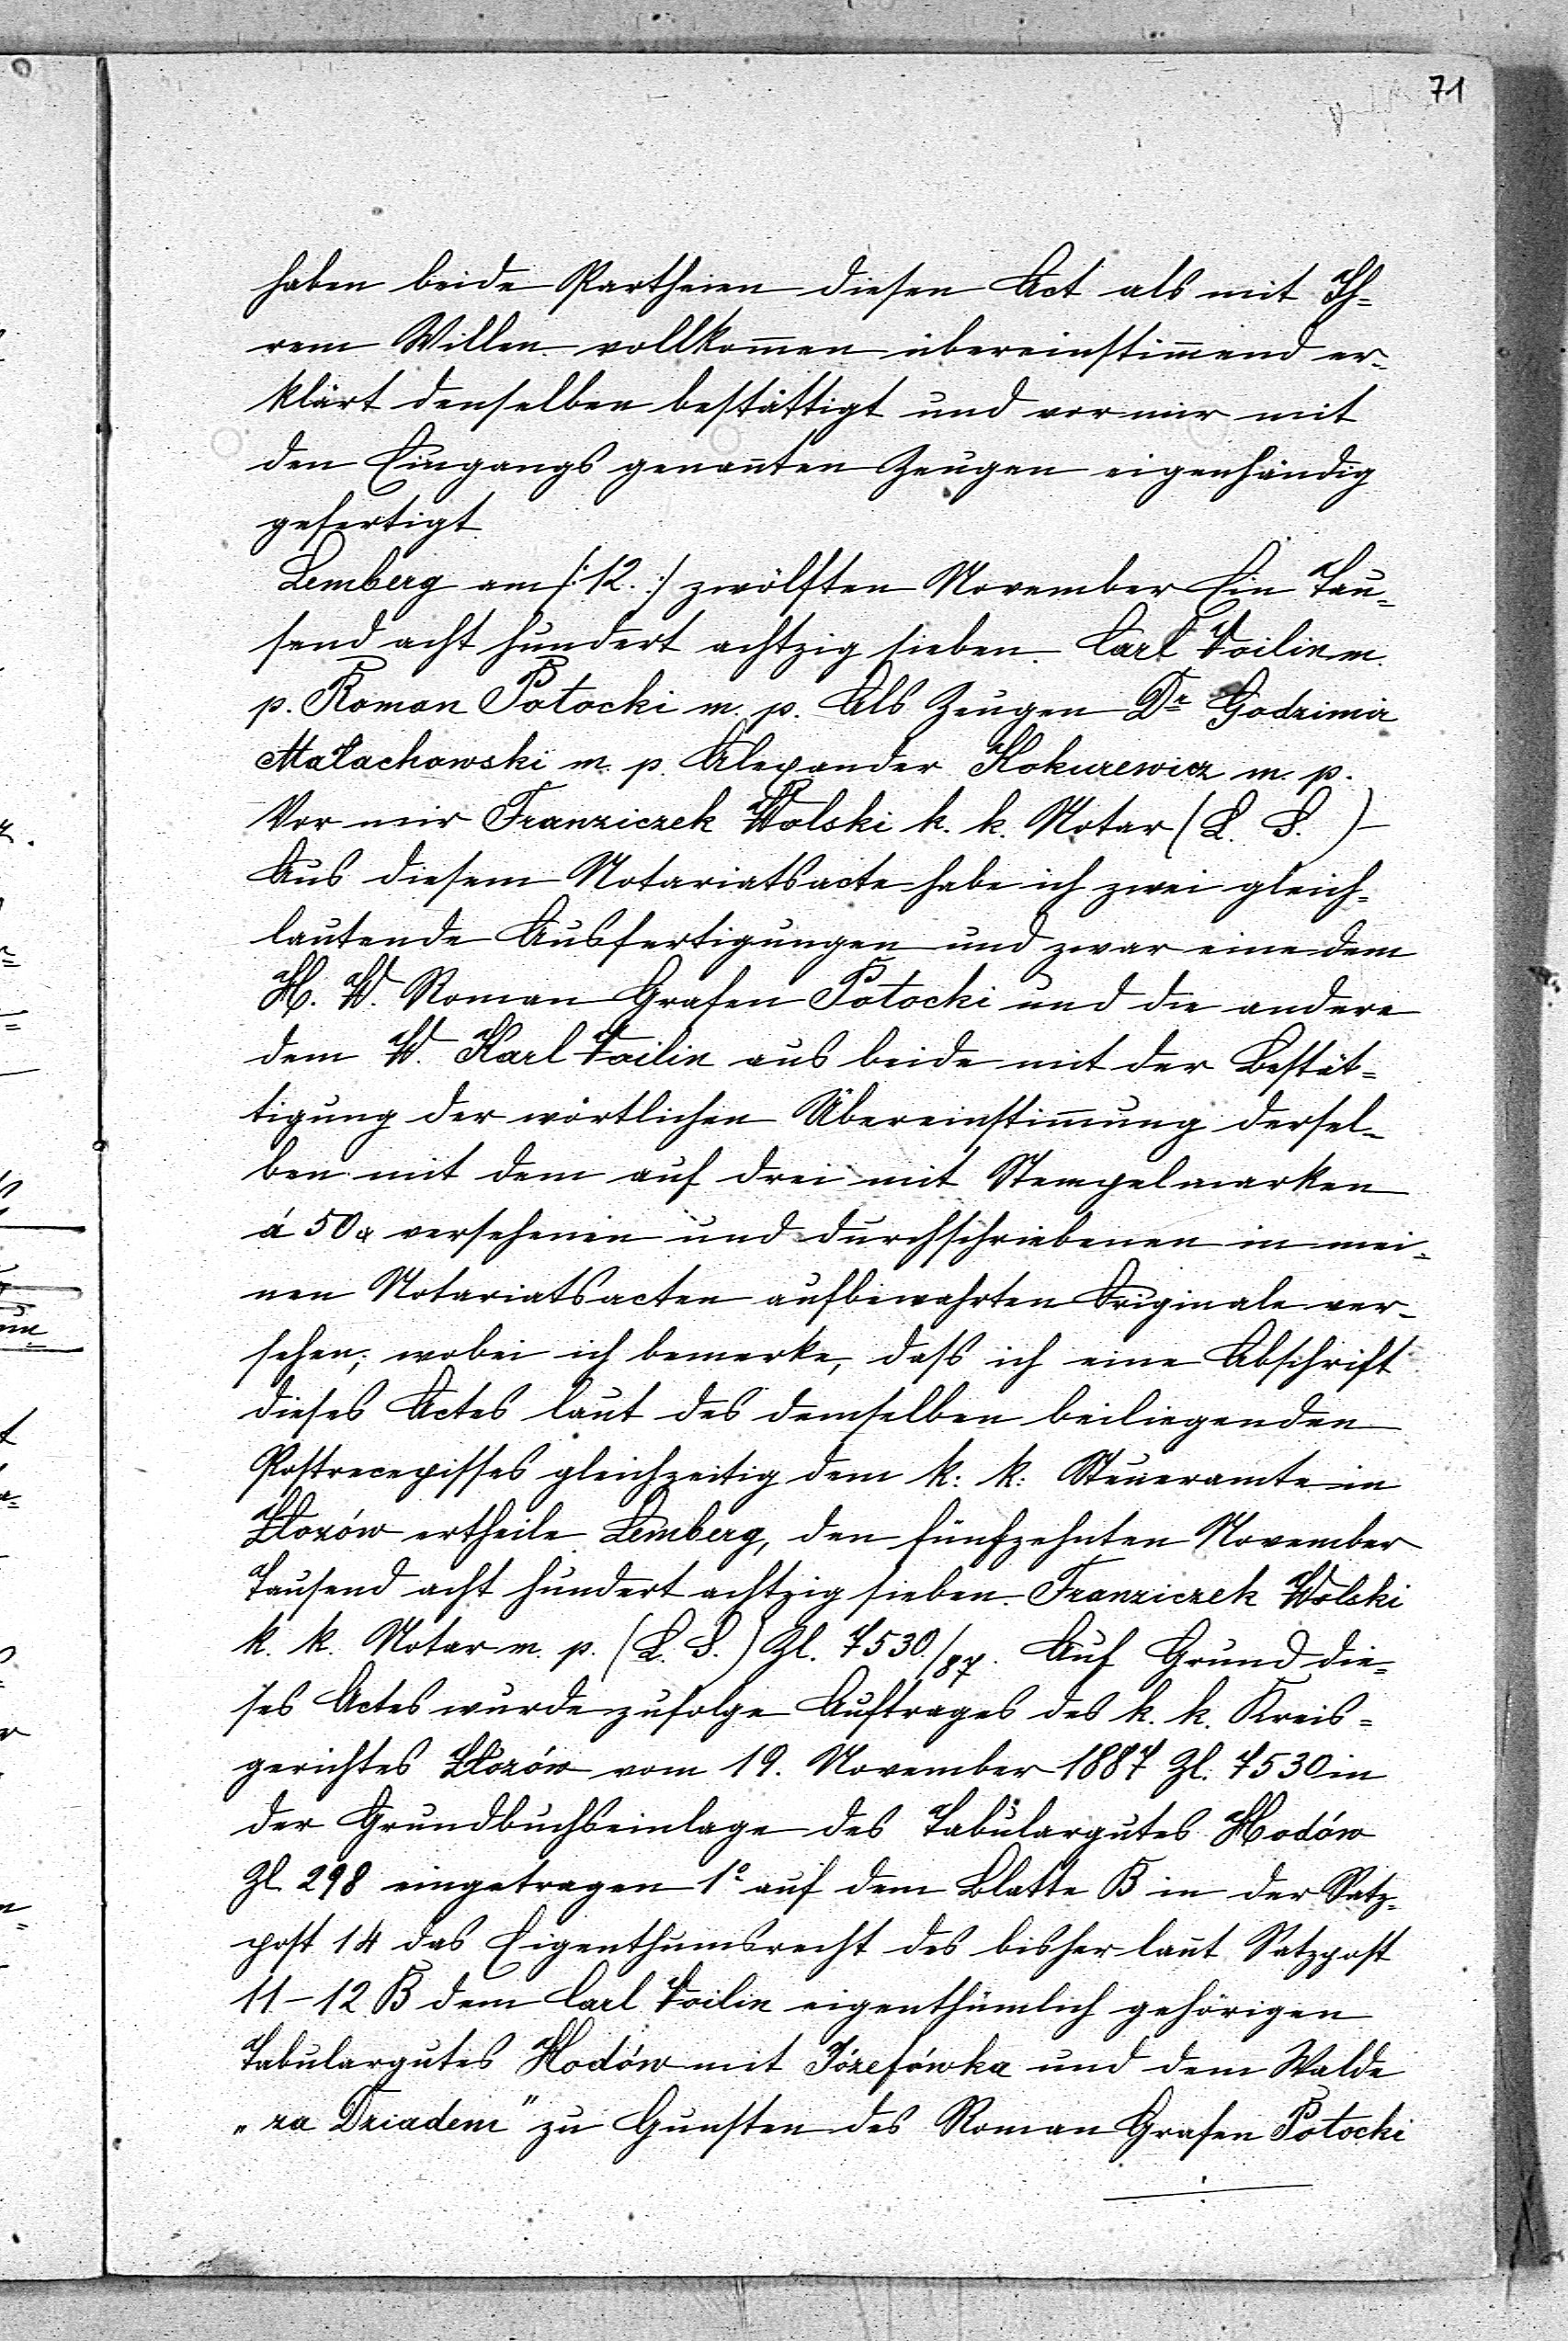 71
haben beide Partheien diesen Act als mit Ih-
rem Willen vollkom̄en übereinstim̄end er-
klärt denselben bestättigt und vor mir mit
den Eingangs genan̄ten Zeugen eigenhändig
gefertigt.
Lemberg am /: 12. :/ zwölften November Ein Tau-
send acht hundert achtzig sieben. Carl Voilin m.
p. Roman Potocki m. p. Als Zeugen Dr Godzimir
Małachowski m. p. Alexander Kokurewicz m. p.
Vor mir Franziczek Wolski k. k. Notar (L. S.) –
Aus diesem Notariatsacte habe ich zwei gleich-
lautende Ausfertigungen und zwar eine dem
H. W. Roman Grafen Potocki und die andere
dem W. Karl Voilin aus beide mit der Bestät-
tigung der wörtlichen Übereinstim̄ung dersel-
ben mit dem auf drei mit Stempelmarken
á 50 x versehenen und durchschriebenen in mei-
nen Notariatsacten aufbewahrten Originale ver-
sehen; wobei ich bemerke, dass ich eine Abschrift
dieses Actes laut des demselben beiliegenden
Postrecepisses gleichzeitig dem k: k: Steueramte in
Złozów ertheile Lemberg, den fünfzehnten November
Tausend acht hundert achtzig sieben. Franziczek Wolski
k. k. Notar m. p. (L. S.) Zl. 7530/87. Auf Grund die-
ses Actes wurde zufolge Auftrages des k. k. Kreis-
gerichtes Złozów vom 19. November 1887 Zl. 7530 in
der Grundbuchseinlage des Tabulargutes Hodów
Zl. 298 eingetragen 1º auf dem Blatte B in der Satz-
post 14 das Eigenthumsrecht des bisher laut Satzpost
11–12 B dem Carl Voilin eigenthümlich gehörigen
Tabulargutes Hodów mit Józefówka und dem Walde
„za Dziadem" zu Gunsten des Roman Grafen Potocki